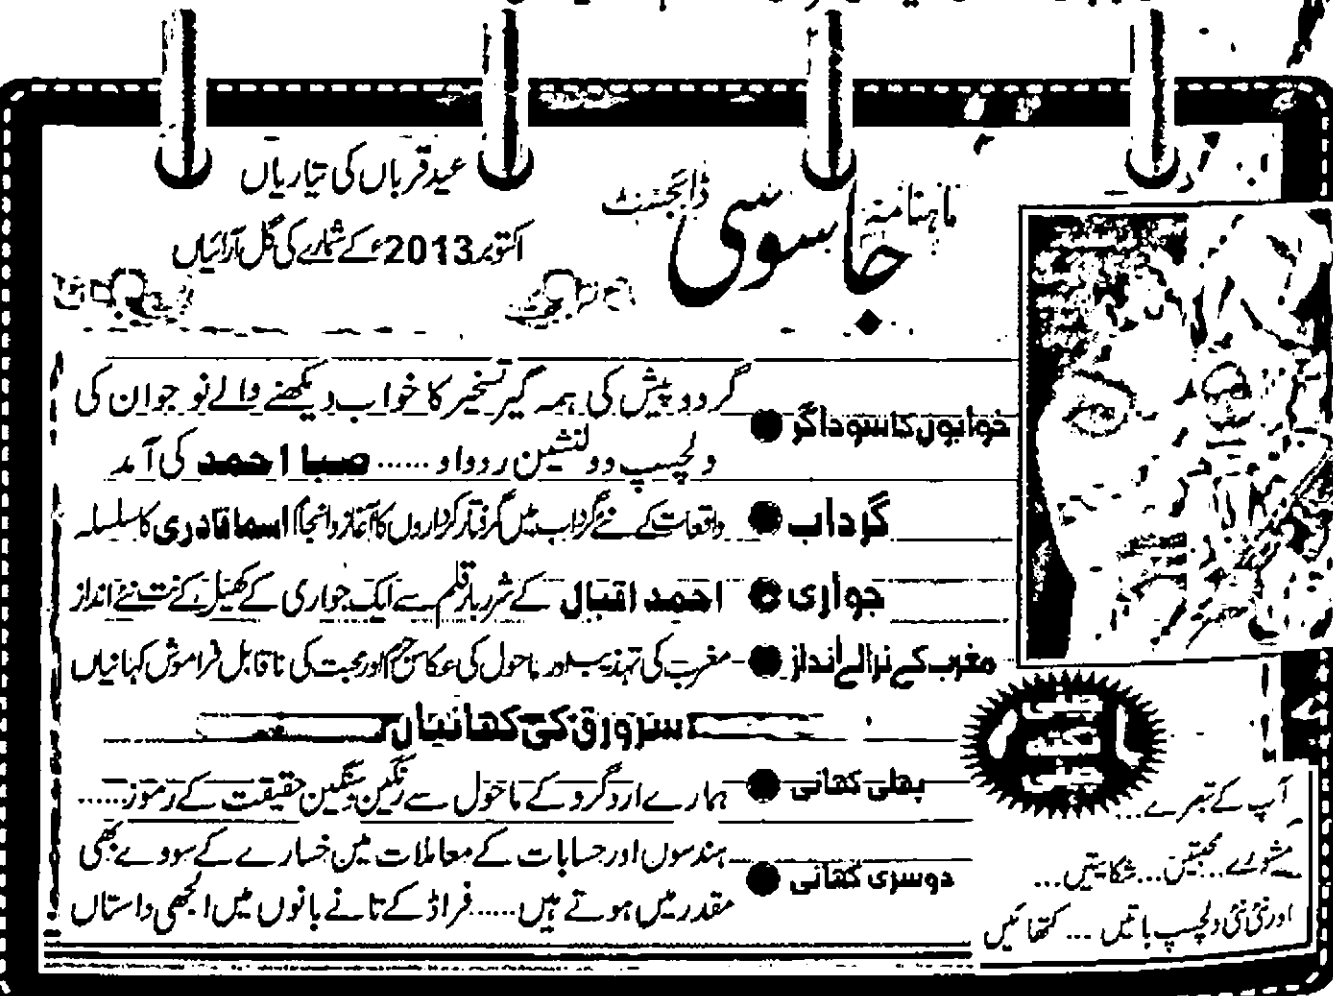 ماہنامہ جاسوسی ڈائجسٹ
عید قرباں کی تیاریاں
اکتوبر 2013ء کے شمارے کی گل آرائیاں
خوابوں کا سوداگر
گردوپیش کی ہمہ گیر تسخیر کا خواب دیکھنے والے نوجوان کی
دلچسپ و دلنشین روداد ...... صبا احمد کی آمد
گرداب
واقعات کے نئے گرداب میں گرفتار کرداروں کا آغاز و انجام اسما قادری کا سلسلہ
جواری
احمد اقبال کے شرربار قلم سے ایک جواری کے کھیل کے نت نئے انداز
مغرب کے نرالے انداز
مغرب کی تہذیب اور ماحول کی عکاس جرم اور محبت کی ناقابل فراموش کہانیاں
سرورق کی کہانیاں
پہلی کہانی
ہمارے اردگرد کے ماحول سے رنگین و سنگین حقیقت کے رموز......
دوسری کہانی
ہندسوں اور حسابات کے معاملات میں خسارے کے سودے بھی
مقدر میں ہوتے ہیں...... فراڈ کے تانے بانوں میں الجھی داستاں
چینی
نکتہ
چینی
آپ کے تبصرے...
مشورے... محبتیں... شکایتیں...
اور نئی نئی دلچسپ باتیں... کتھائیں